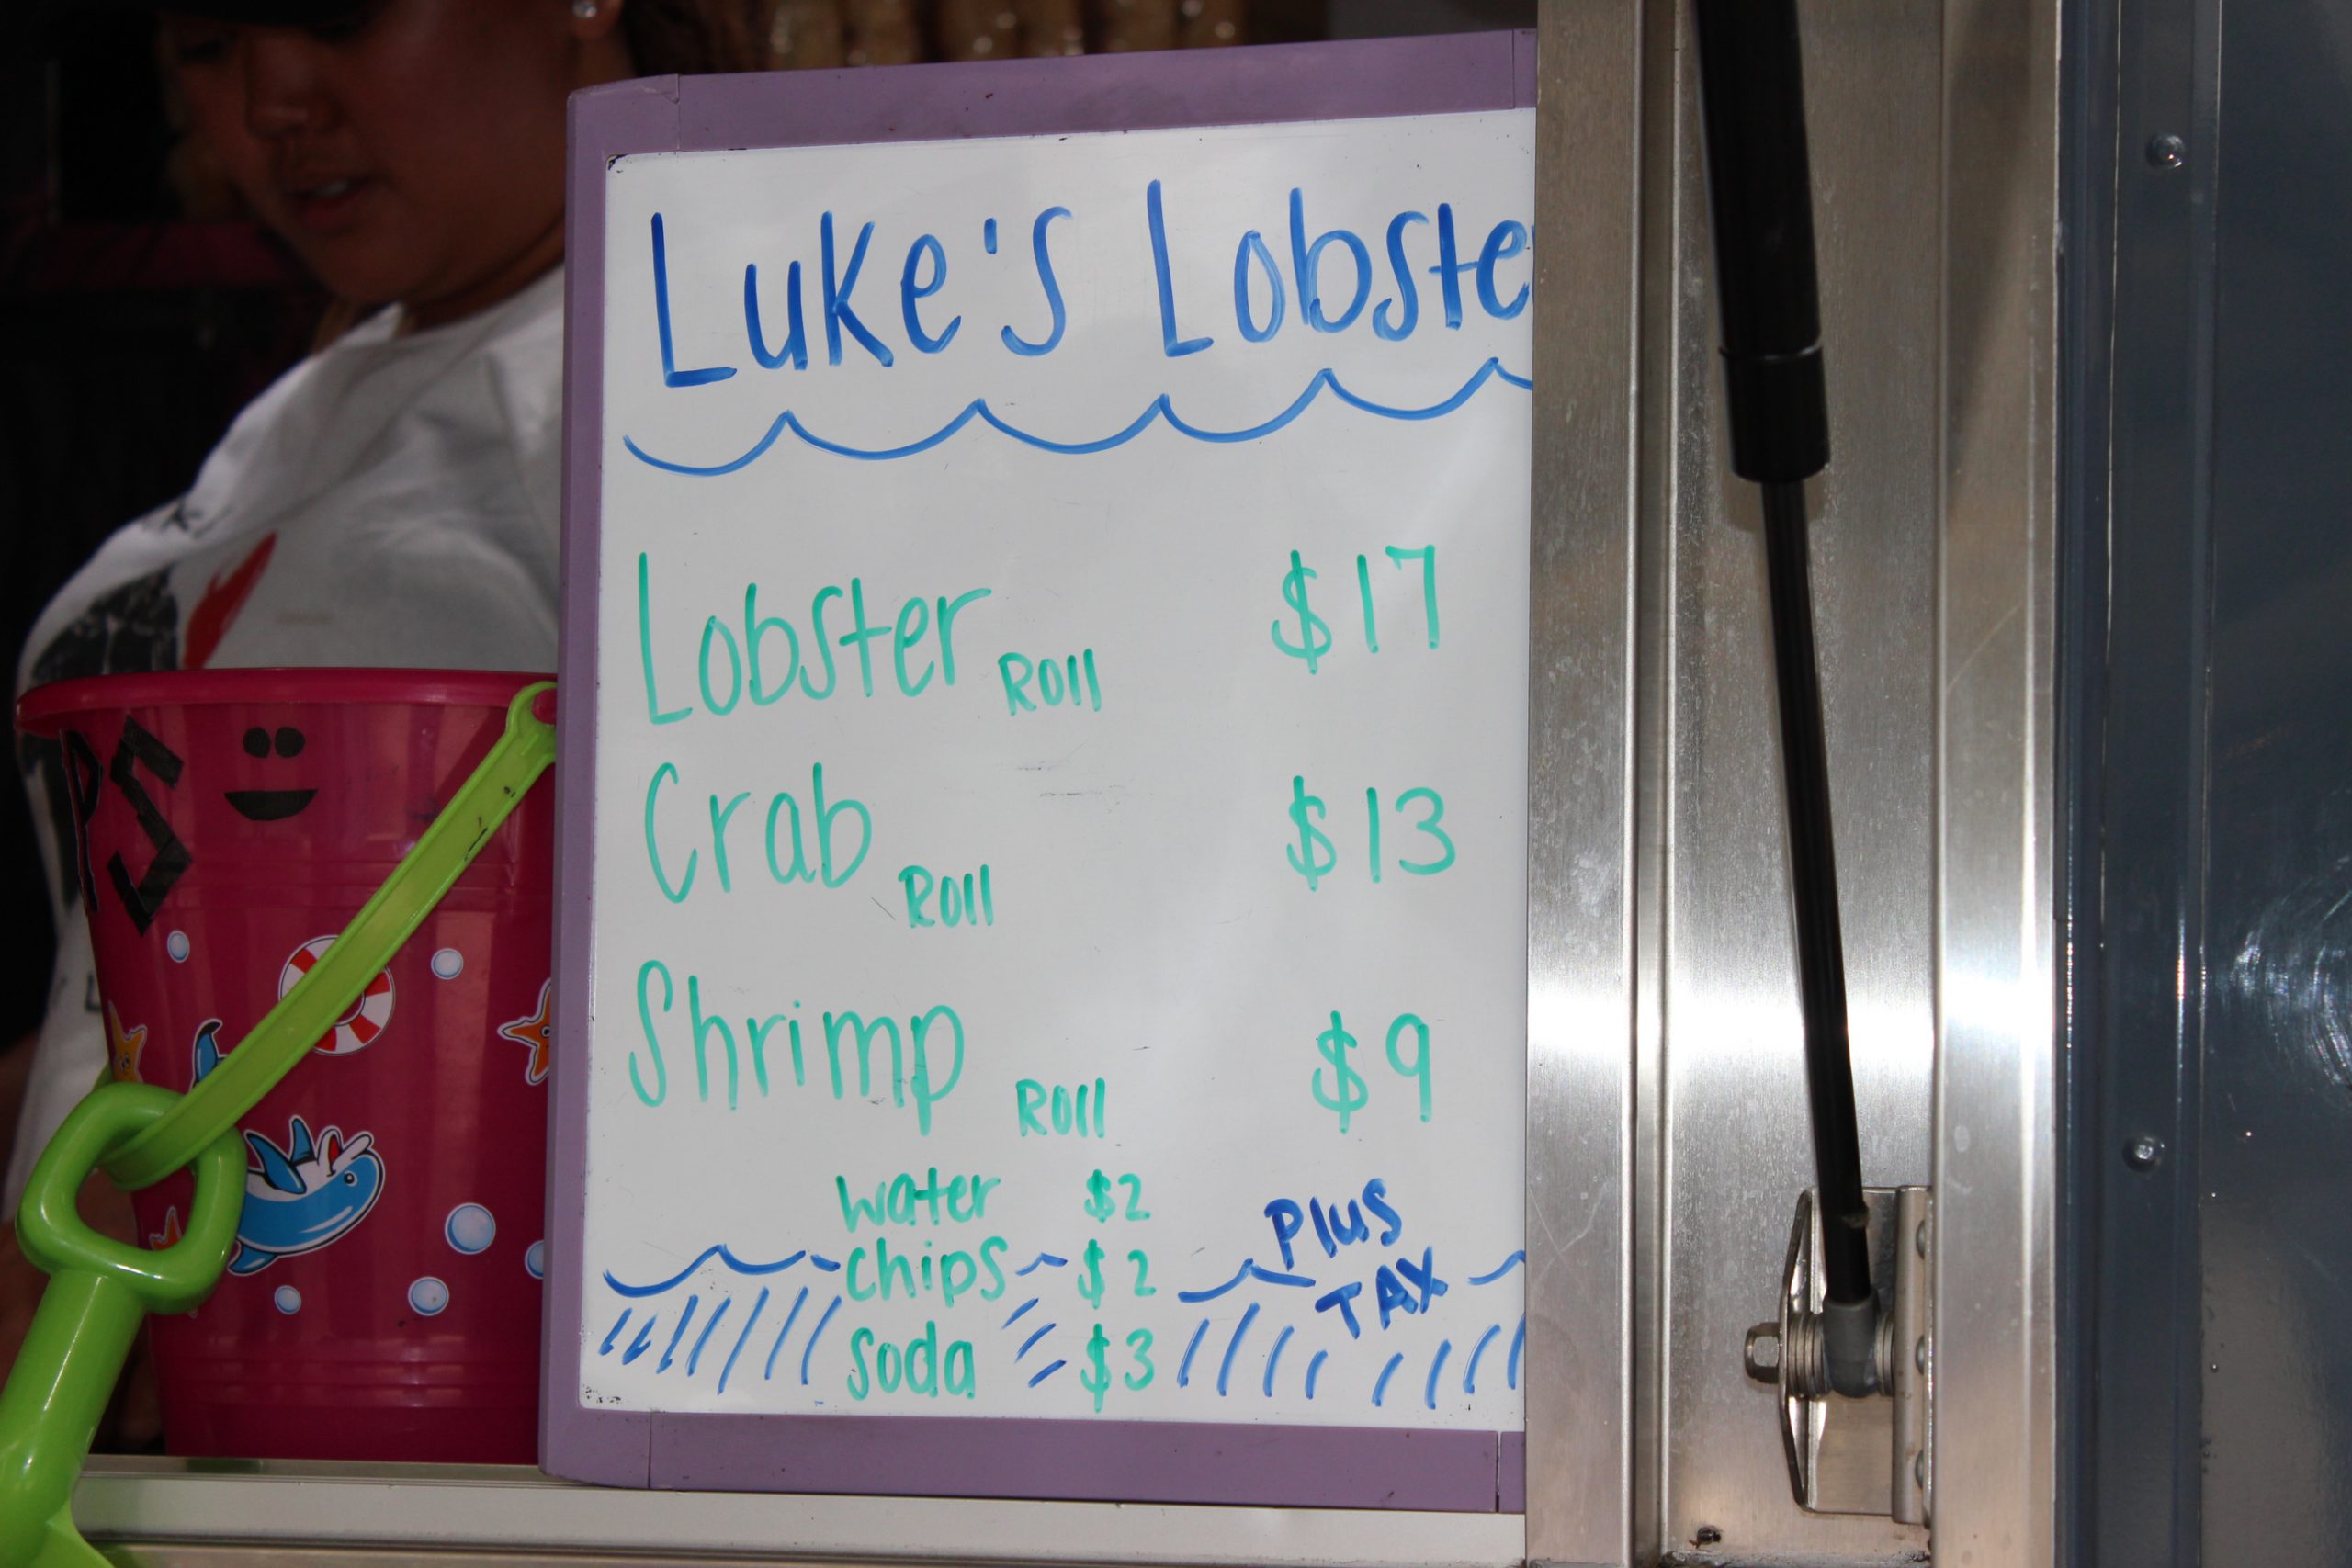 Luke's Lobste
Lobster Roll $17
Crab Roll $13
Shrimp Roll $9
water $2
chips $2
soda $3
Plus
TAX
PS